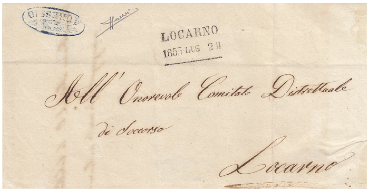 LOCARNO
1857 LUG 29
All' Onorevole Comitato Distrettuale
di Soccorso
Locarno